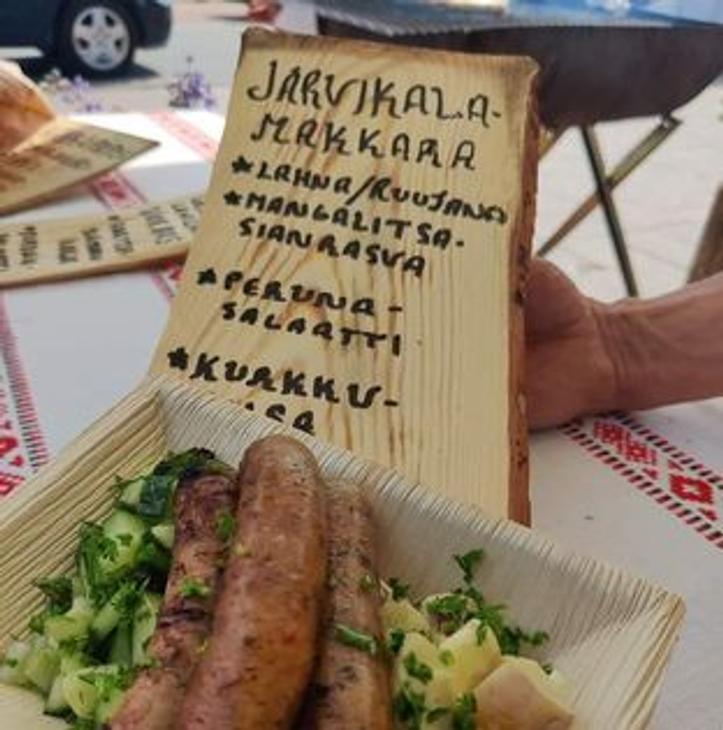 JARVIKALA-
MAKKARA
*LAHNA/RUUTANA
*MANGALITSA-
SIANRASVA
*PERUNA-
SALAATTI
*KURKKU-